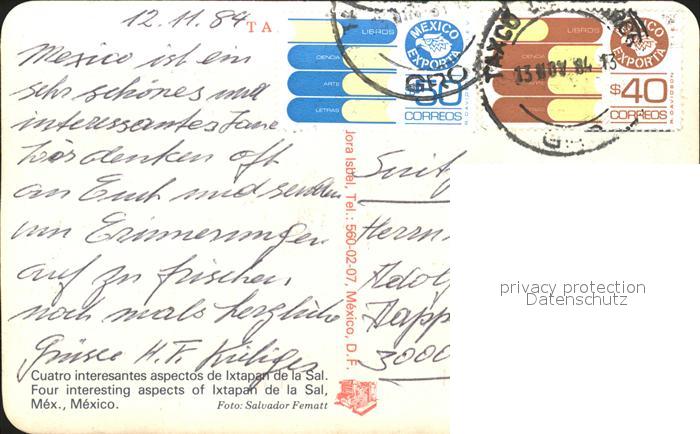 12.11.84
TA
Mexico ist ein
sehr schönes und
interessantes Land
Wir denken oft
an Euch und senden
um Erinnerungen
auf zu frischen
noch mals herzliche
Grüsse H. F.
Cuatro interesantes aspectos de Ixtapan de la Sal.
Four interesting aspects of Ixtapan de la Sal,
Méx., México.
Foto: Salvador Fematt
Jora Isbel, Tel.: 560-02-07, México, D.F.
LIBROS
CIENCIA
ARTE
LETRAS
MEXICO
EXPORTA
$50
CORREOS
R. DAVIDSON
LIBROS
MEXICO
EXPORTA
$40
CORREOS
R. DAVIDSON
TAXCO
13 NOV 84 13
GRO
Herrn
Adolf
Happ
3000
privacy protection
Datenschutz